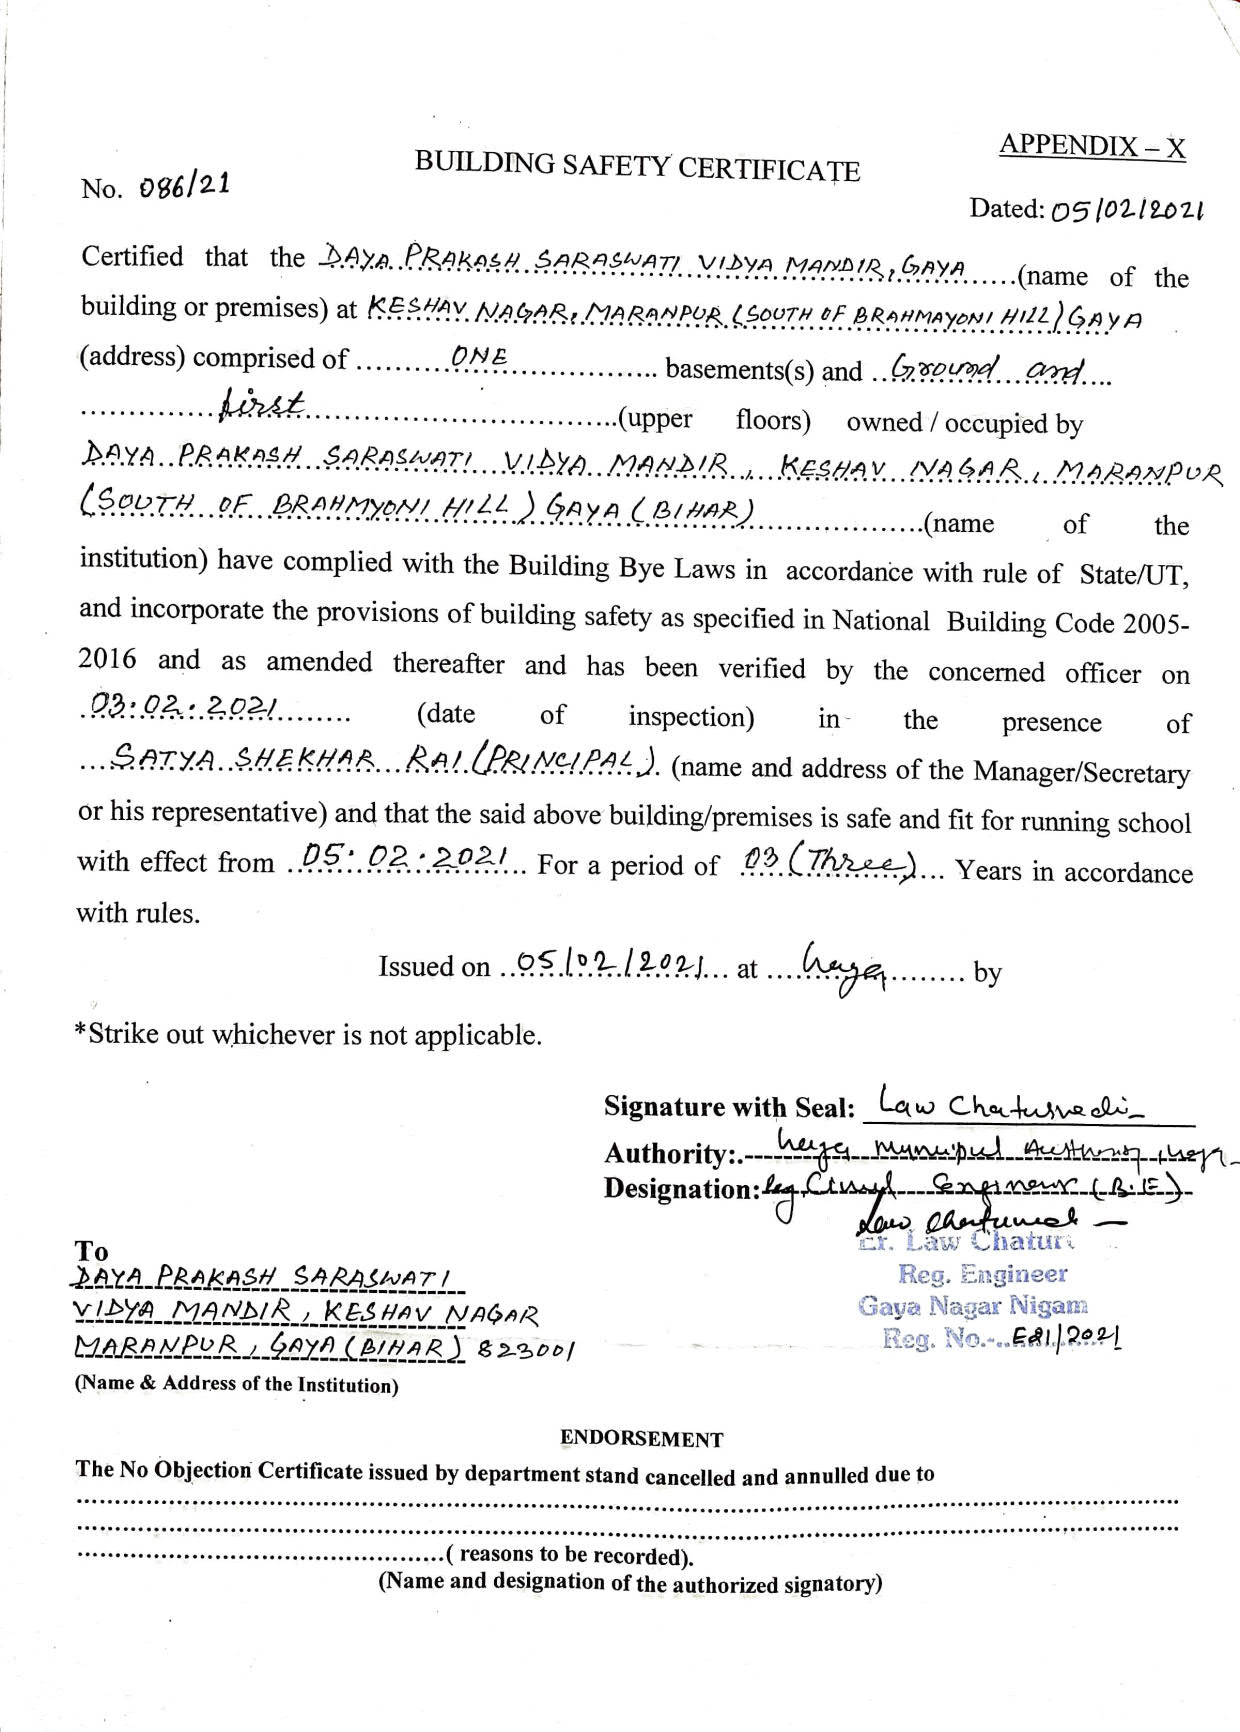 APPENDIX – X
BUILDING SAFETY CERTIFICATE
No. 086/21
Dated: 05/02/2021
Certified that the DAYA PRAKASH SARASWATI VIDYA MANDIR, GAYA......(name of the
building or premises) at KESHAV NAGAR, MARANPUR (SOUTH OF BRAHMAYONI HILL) GAYA
(address) comprised of ..........ONE.................... basements(s) and ..Ground and....
..............first.......................................(upper floors) owned / occupied by
DAYA PRAKASH SARASWATI VIDYA MANDIR, KESHAV NAGAR, MARANPUR
(SOUTH OF BRAHMYONI HILL) GAYA (BIHAR).....................(name of the
institution) have complied with the Building Bye Laws in accordance with rule of State/UT,
and incorporate the provisions of building safety as specified in National Building Code 2005-
2016 and as amended thereafter and has been verified by the concerned officer on
.03:02.2021......... (date of inspection) in the presence of
...SATYA SHEKHAR RAI (PRINCIPAL). (name and address of the Manager/Secretary
or his representative) and that the said above building/premises is safe and fit for running school
with effect from ..05:02:2021... For a period of 03 (Three)... Years in accordance
with rules.
Issued on ..05/02/2021... at ....Gaya......... by
*Strike out whichever is not applicable.
Signature with Seal: Law Chaturvedi
Authority:.---Gaya Municipal
Designation: Engineer
Er. Law Chatur
Reg. Engineer
Gaya Nagar Nigam
Reg. No.-..E81/2021
To
DAYA PRAKASH SARASWATI
VIDYA MANDIR, KESHAV NAGAR
MARANPUR, GAYA (BIHAR) 823001
(Name & Address of the Institution)
ENDORSEMENT
The No Objection Certificate issued by department stand cancelled and annulled due to
............................................( reasons to be recorded).
(Name and designation of the authorized signatory)